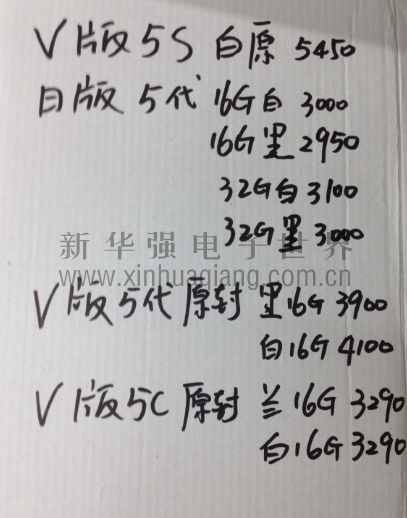 V版5S 白原 5450
日版 5代 16G白 3000
16G黑 2950
32G白 3100
32G黑 3000
新华强电子世界
www.xinhuaqiang.com.cn
V版5代原封 黑16G 3900
白16G 4100
V版5C 原封 兰16G 3290
白16G 3290